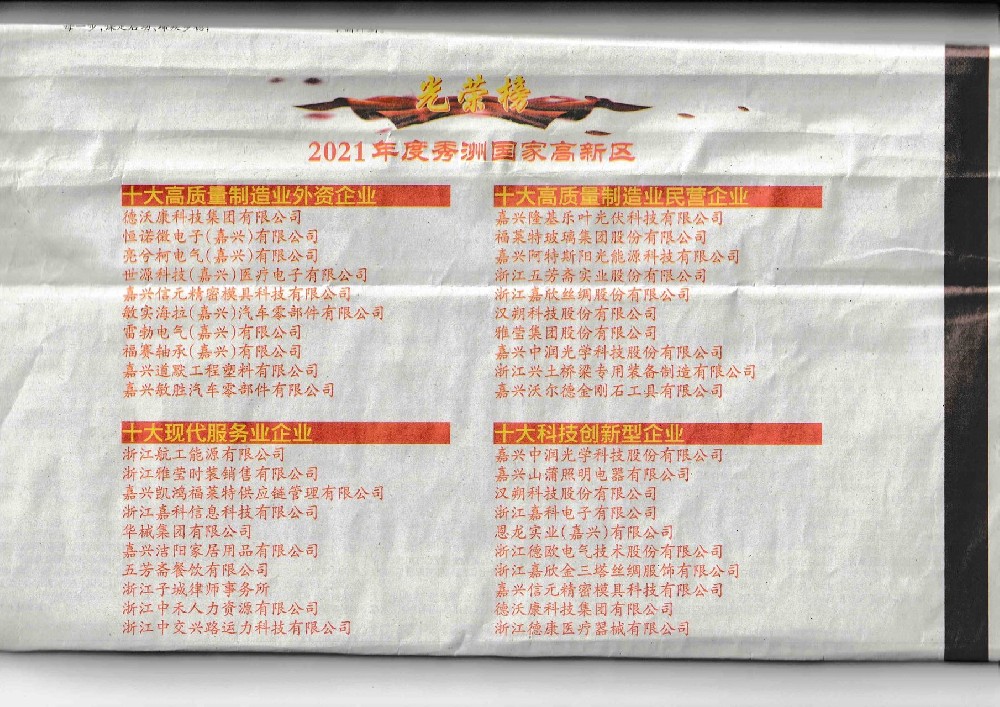 光荣榜
2021年度秀洲国家高新区
十大高质量制造业外资企业
德沃康科技集团有限公司
恒诺微电子(嘉兴)有限公司
亮兮柯电气(嘉兴)有限公司
世源科技(嘉兴)医疗电子有限公司
嘉兴信元精密模具科技有限公司
敏实海拉(嘉兴)汽车零部件有限公司
雷勃电气(嘉兴)有限公司
福赛轴承(嘉兴)有限公司
嘉兴道欧工程塑料有限公司
嘉兴敏胜汽车零部件有限公司
十大高质量制造业民营企业
嘉兴隆基乐叶光伏科技有限公司
福莱特玻璃集团股份有限公司
嘉兴阿特斯阳光能源科技有限公司
浙江五芳斋实业股份有限公司
浙江嘉欣丝绸股份有限公司
汉朔科技股份有限公司
雅莹集团股份有限公司
嘉兴中润光学科技股份有限公司
浙江兴土桥梁专用装备制造有限公司
嘉兴沃尔德金刚石工具有限公司
十大现代服务业企业
浙江航工能源有限公司
浙江雅莹时装销售有限公司
嘉兴凯鸿福莱特供应链管理有限公司
浙江嘉科信息科技有限公司
华械集团有限公司
嘉兴洁阳家居用品有限公司
五芳斋餐饮有限公司
浙江子城律师事务所
浙江中禾人力资源有限公司
浙江中交兴路运力科技有限公司
十大科技创新型企业
嘉兴中润光学科技股份有限公司
嘉兴山蒲照明电器有限公司
汉朔科技股份有限公司
浙江嘉科电子有限公司
恩龙实业(嘉兴)有限公司
浙江德欧电气技术股份有限公司
浙江嘉欣金三塔丝绸服饰有限公司
嘉兴信元精密模具科技有限公司
德沃康科技集团有限公司
浙江德康医疗器械有限公司